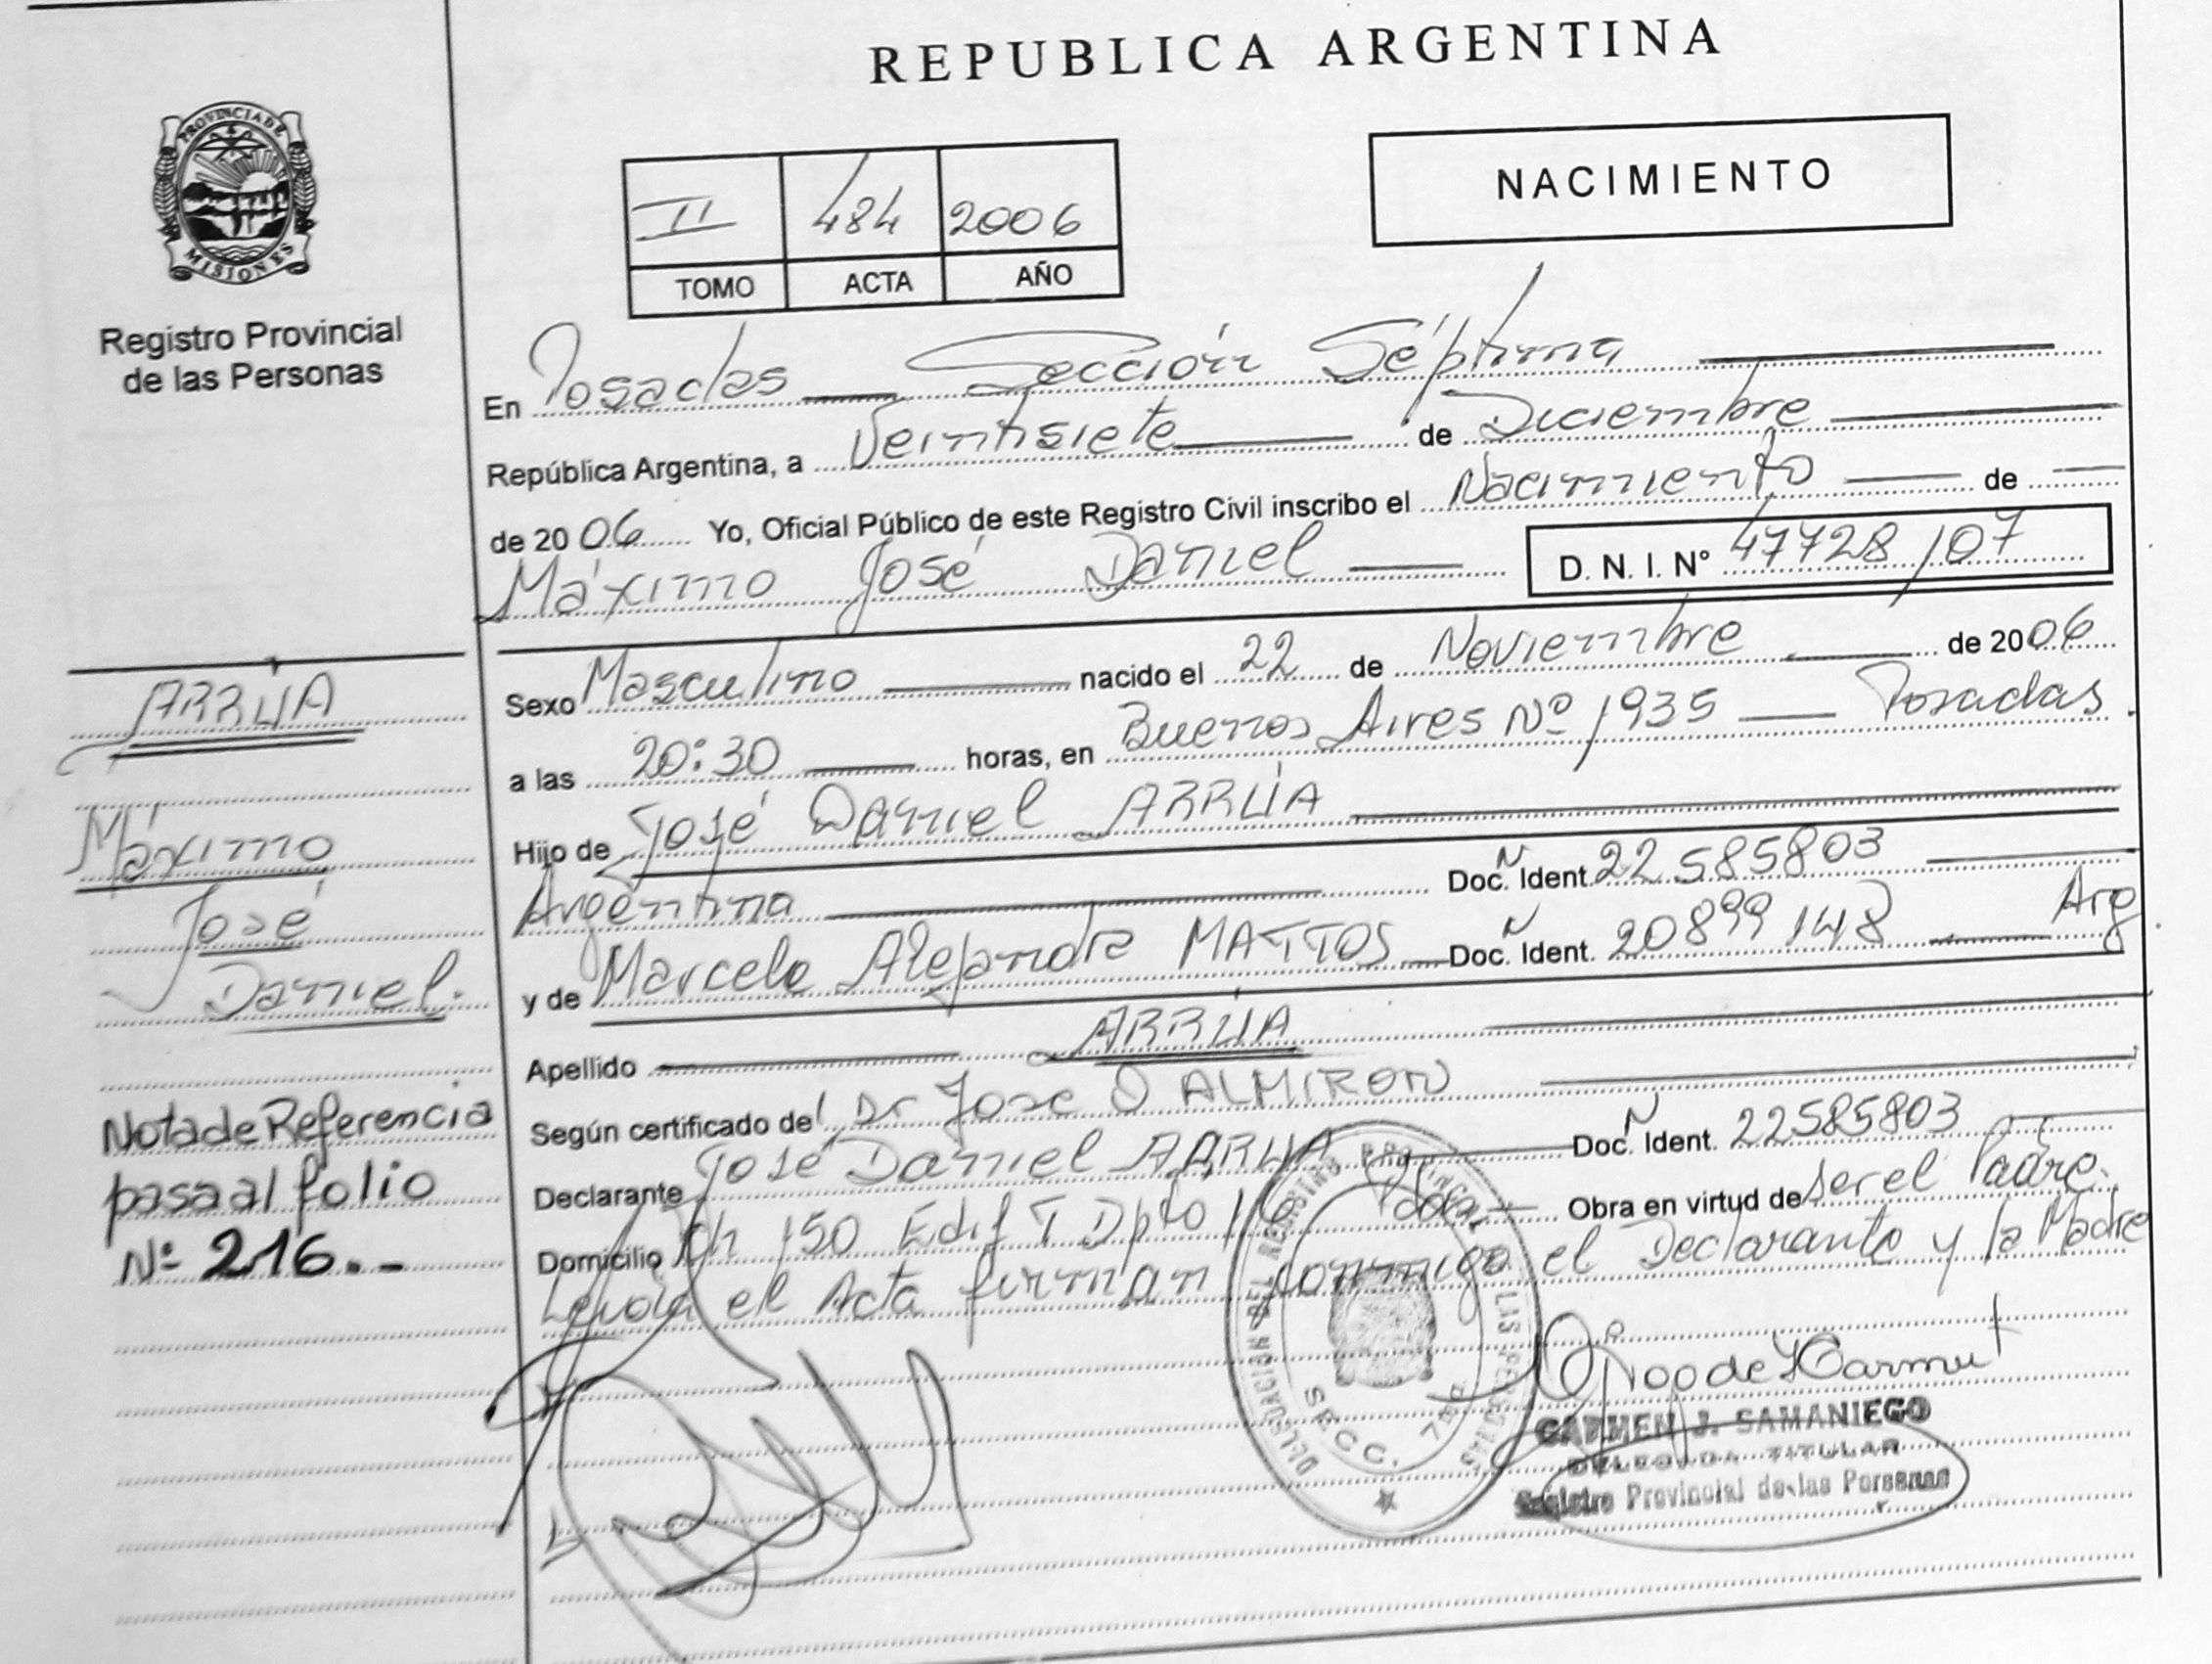 REPUBLICA ARGENTINA
PROVINCIA DE
MISIONES
Registro Provincial
de las Personas
II 484 2006
TOMO ACTA AÑO
NACIMIENTO
En Posadas Sección Séptima
República Argentina, a Veintisiete de Diciembre
de 2006 Yo, Oficial Público de este Registro Civil inscribo el Nacimiento de
Máximo José Daniel D. N. I. Nº 47728107
Sexo Masculino nacido el 22 de Noviembre de 2006
a las 20:30 horas, en Buenos Aires Nº 1935 Posadas
Hijo de José Daniel ARRÚA
Argentina Doc. N Ident. 22585803
y de Marcela Alejandra MATTOS Doc. N Ident. 20899148 Arg
Apellido ARRÚA
Según certificado del Dr Jose D ALMIRON
Declarante José Daniel ARRUA Doc. N Ident. 22585803
Domicilio Ch 150 Edif T Dpto Obra en virtud de ser el Padre.
Leída el Acta firman conmigo el Declarante y la Madre
ARRÚA
Máximo
José
Daniel.
Nota de Referencia
pasa al folio
Nº 216.-
DELEGACION DEL REGISTRO PROVINCIAL DE LAS PERSONAS
SECC. 7
CARMEN J. SAMANIEGO
DELEGADA TITULAR
Registro Provincial de las Personas